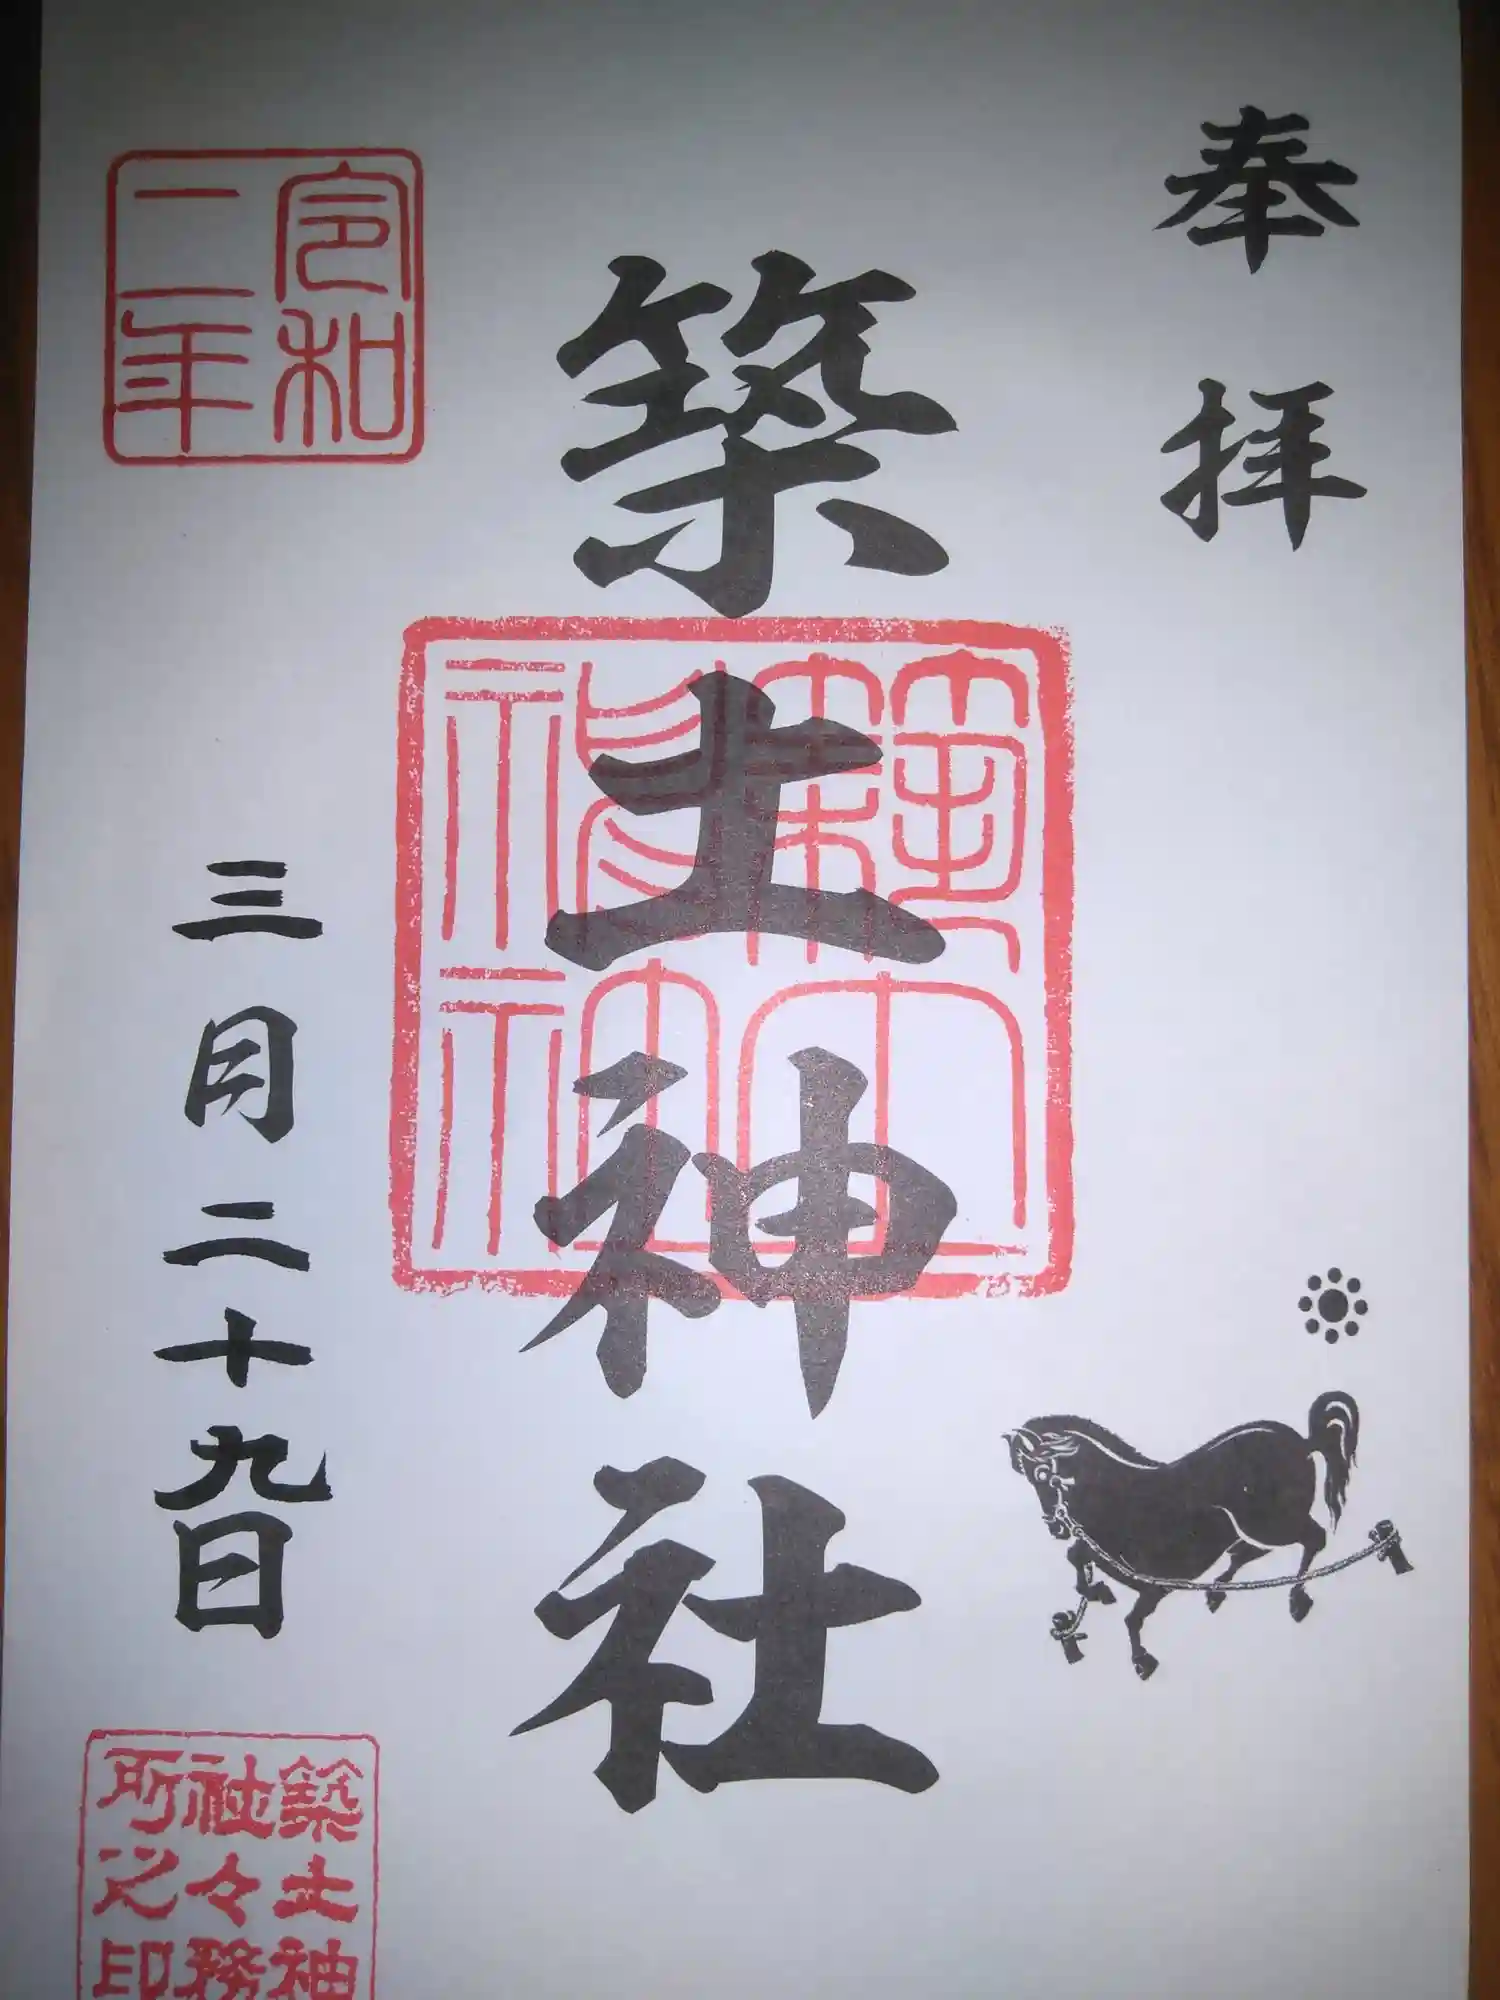 奉拝
築土神社
令和
二年
三月二十九日
築土神
社々務
所之印